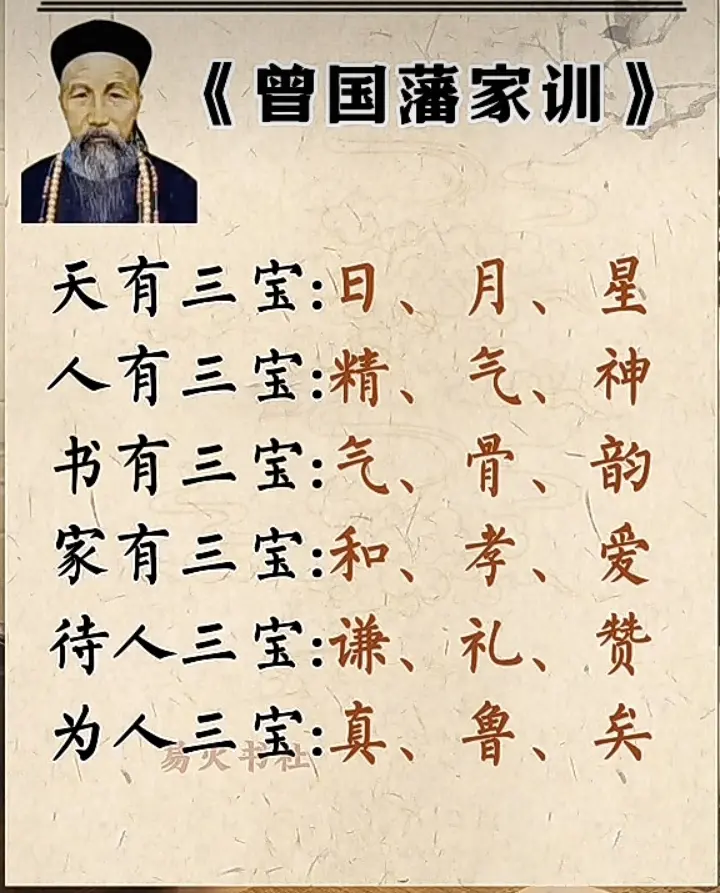 《曾国藩家训》
天有三宝:日、月、星
人有三宝:精、气、神
书有三宝:气、骨、韵
家有三宝:和、孝、爱
待人三宝:谦、礼、赞
为人三宝:真、鲁、矣
易火书社